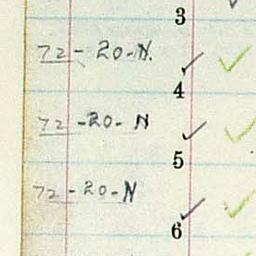 3
72-20-N.
4
72-20-N
5
72-20-N
6